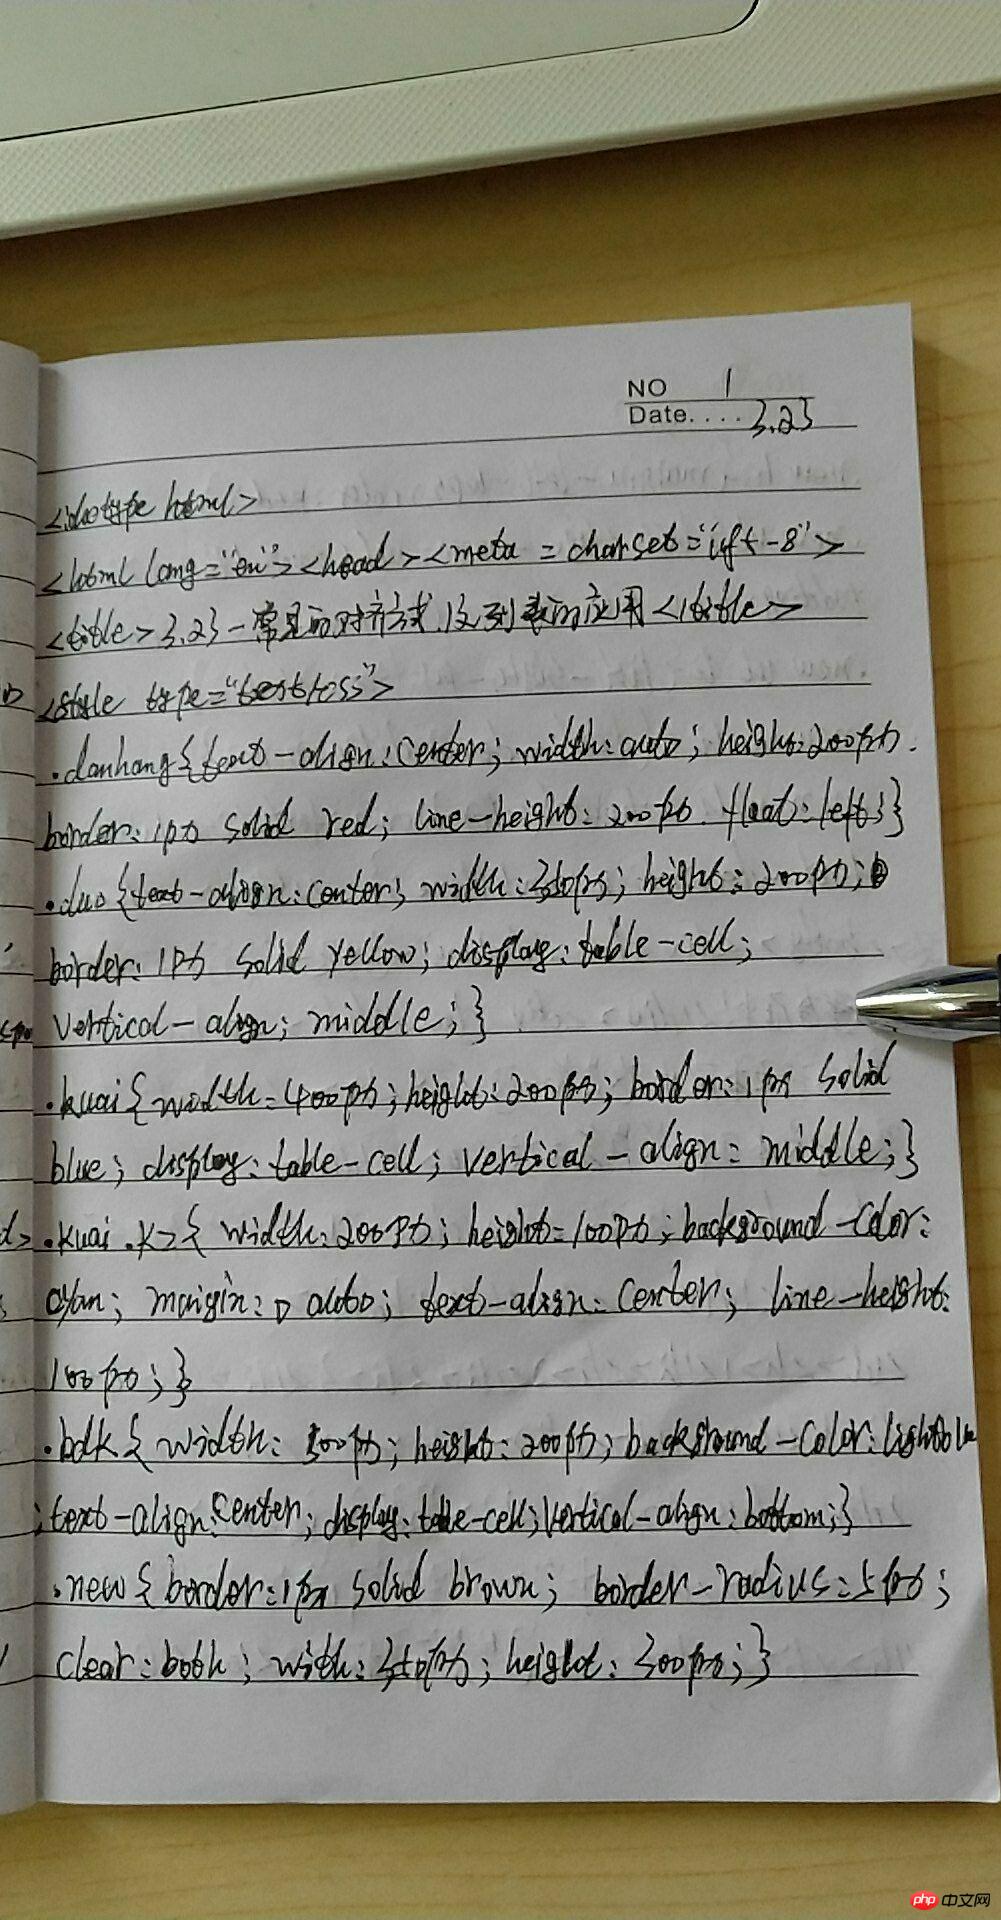 NO 1
Date.... 3.23
<!doctype html>
<html lang="en"><head><meta = charset="utf-8">
<title>3.23-常见的对齐方式及列表的应用</title>
<style type="text/css">
.danhang{text-align:center; width:auto; height:200px.
border:1px solid red; line-height:200px. float:left;}
.duo{text-align:center; width:350px; height:200px;
border:1px solid yellow; display:table-cell;
vertical-align:middle;}
.kuai{width:400px;height:200px; border:1px solid
blue; display:table-cell; vertical-align:middle;}
.kuai .k2{ width:200px; height:100px;background-color:
cyan; margin:0 auto; text-align:center; line-height:
100px;}
.bdk{ width: 500px; height:200px; background-color:lightblue
;text-align:center; display:table-cell;vertical-align:bottom;}
.new{border:1px solid brown; border-radius:5px;
clear:both; with:350px; height:300px;}
php 中文网